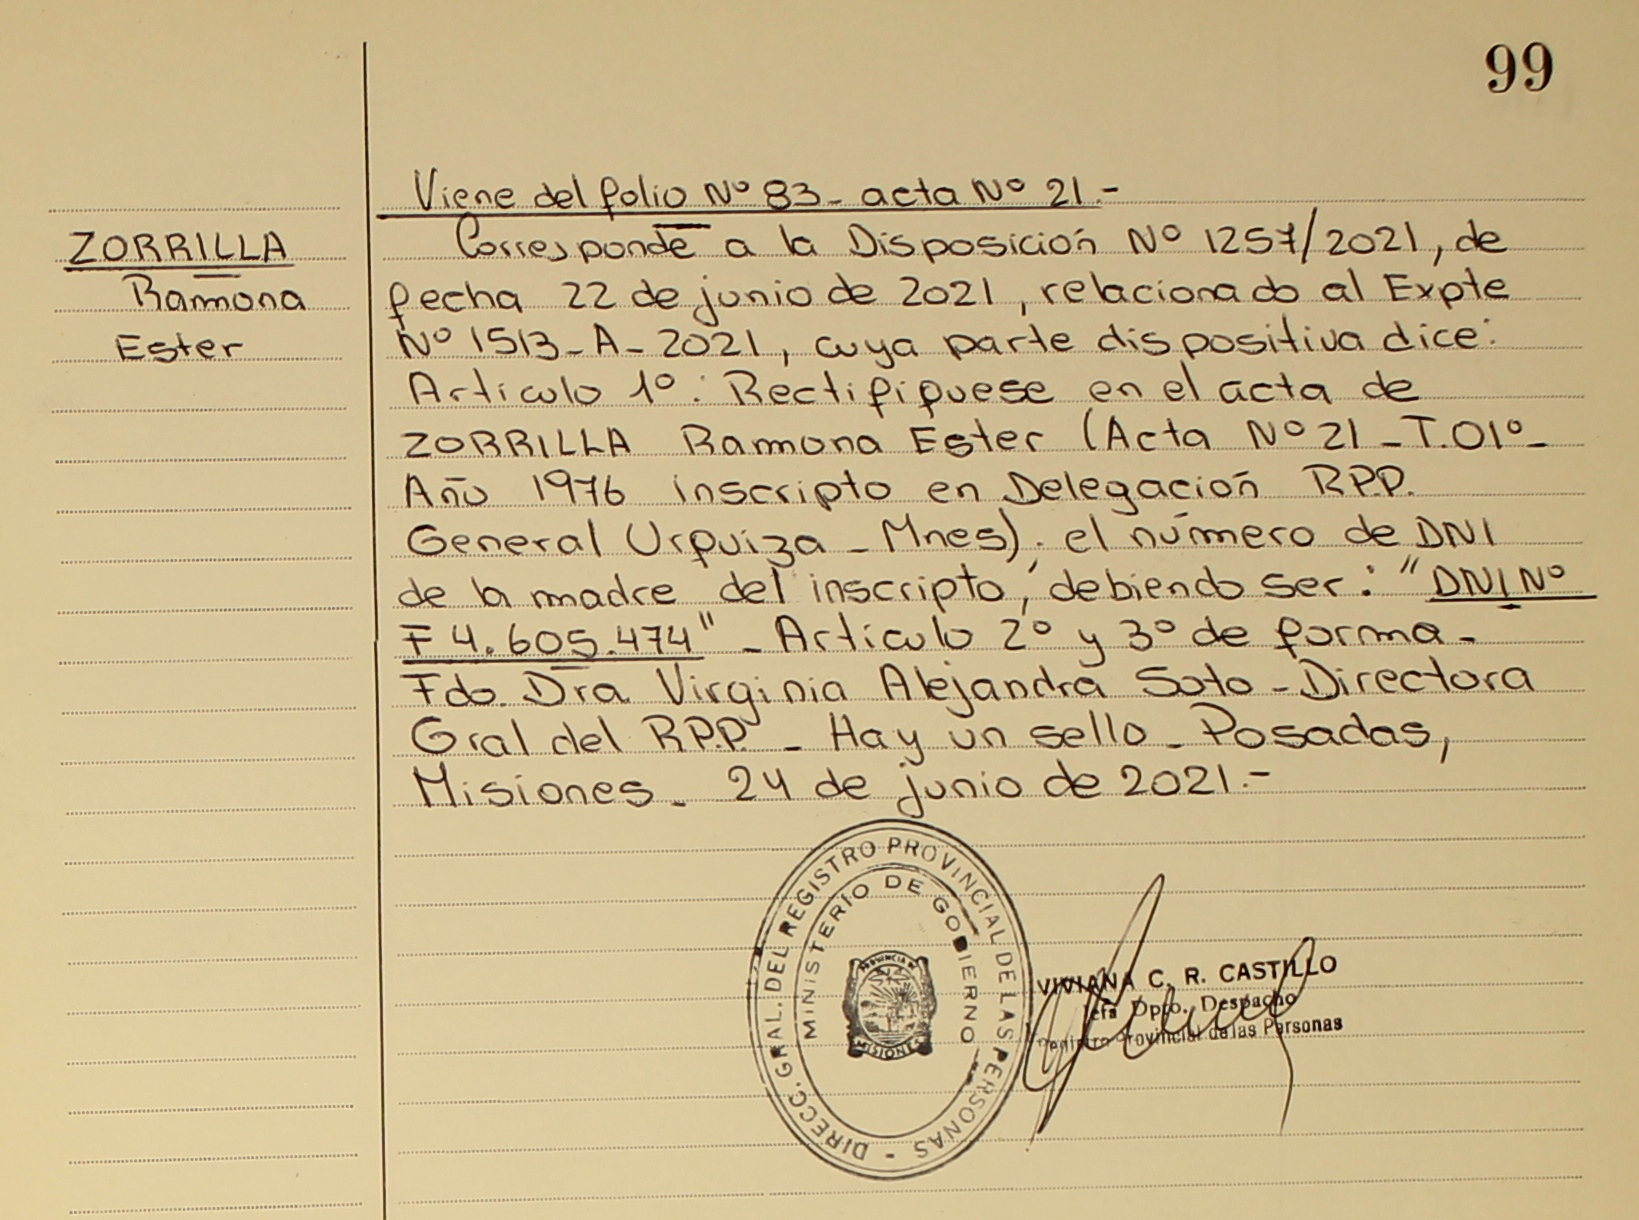 99
Viene del folio Nº 83_ acta Nº 21.-
ZORRILLA
Ramona
Ester
Corresponde a la Disposición Nº 1257/2021, de
fecha 22 de junio de 2021, relacionado al Expte
Nº 1513_A_2021, cuya parte dispositiva dice:
Artículo 1º: Rectifíquese en el acta de
ZORRILLA Ramona Ester (Acta Nº 21_T.01º_
Año 1976 inscripto en Delegación R.P.P.
General Urquiza_Mnes). el número de DNI
de la madre del inscripto, debiendo ser: "DNI Nº
F 4.605.474"_ Artículo 2º y 3º de forma_
Fdo. Dra Virginia Alejandra Soto_Directora
Gral del R.P.P._ Hay un sello_ Posadas,
Misiones_ 24 de junio de 2021.-
DIRECC. GRAL. DEL REGISTRO PROVINCIAL DE LAS PERSONAS -
MINISTERIO DE GOBIERNO
PROVINCIA DE
MISIONES
VIVIANA C. R. CASTILLO
Jefa Dpto. Despacho
Registro Provincial de las Personas